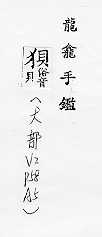 龍龕手鑑
狽俗音貝
（犬部 V2 P58 A5）